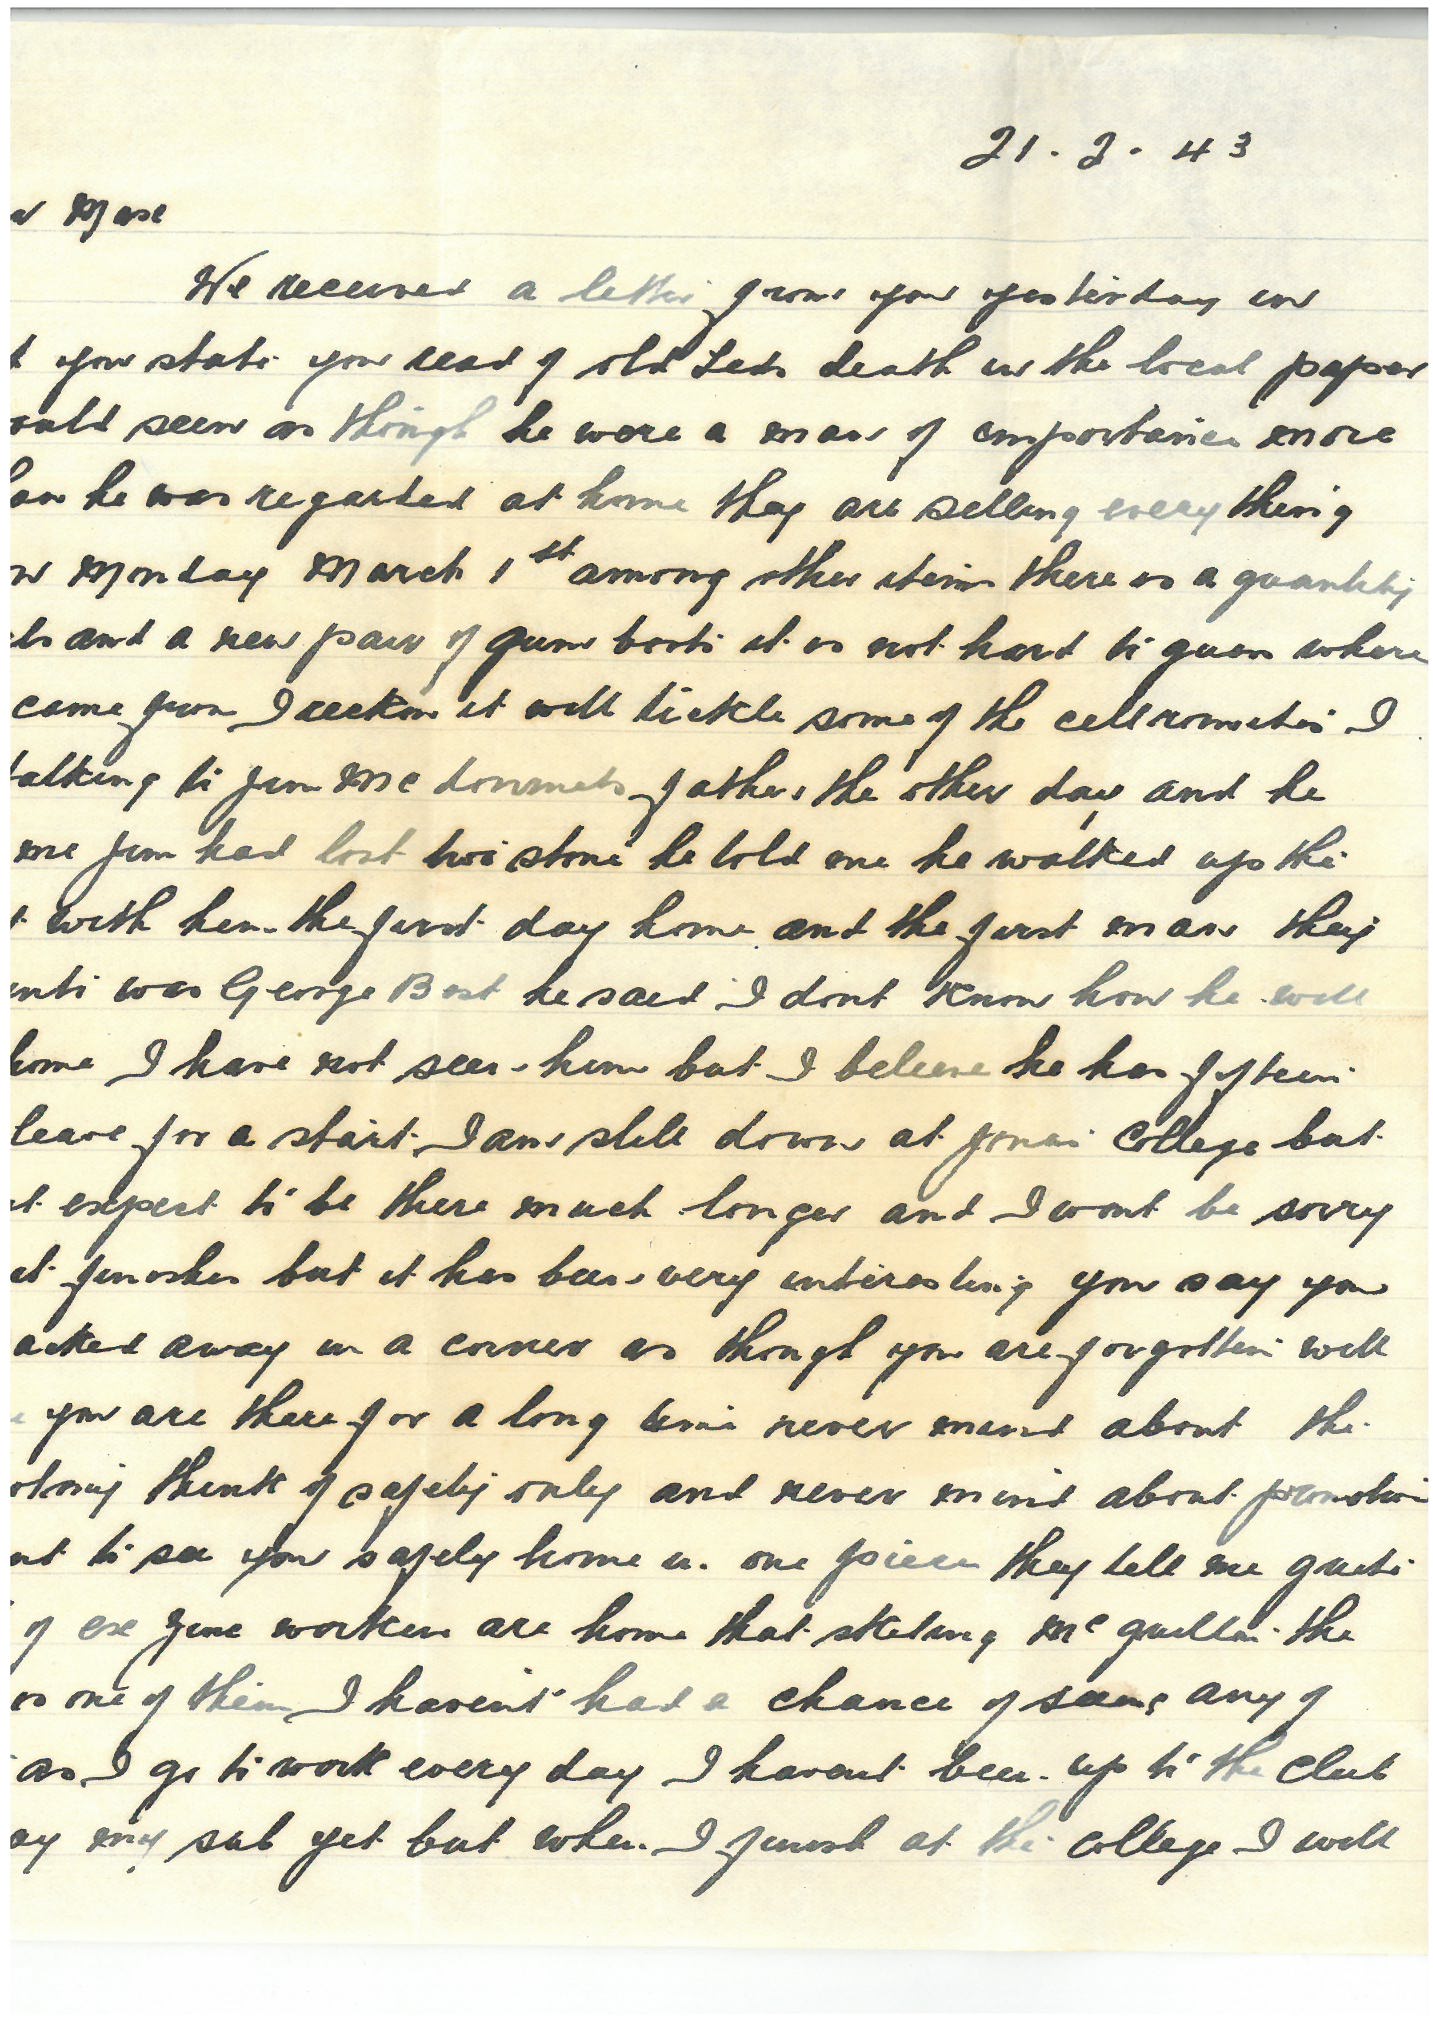 21.2.43
Mase
We received a letter from you yesterday in
you state you read of old Teds death in the local paper
ould seem as though he were a man of importance more
he was regarded at home they are selling every thing
Monday March 1st among other items there is a quantity
and a new pair of gum boots it is not hard to guess where
came from I reckon it will tickle some of the cell romates I
talking to Jim Mc father the other day and he
me Jim had lost two stone he told me he walked up the
with him the first day home and the first man they
was George Best he said I dont know how he will
home I have not seen him but I beleeve he has fifteen
leave for a start I am still down at College but
expect to be there much longer and I wont be sorry
it finishes but it has been very interesting you say you
acked away in a corner as though you are forgotten well
you are there for a long time never mind about the
think of safety only and never mind about promotion
to see you safely home in one piece they tell me quite
of exe working are home that Mc the
is one of them I havent had a chance of seeing any of
as I go to work every day I havent been up to the Club
ay my sub yet but when I finish at the College I will